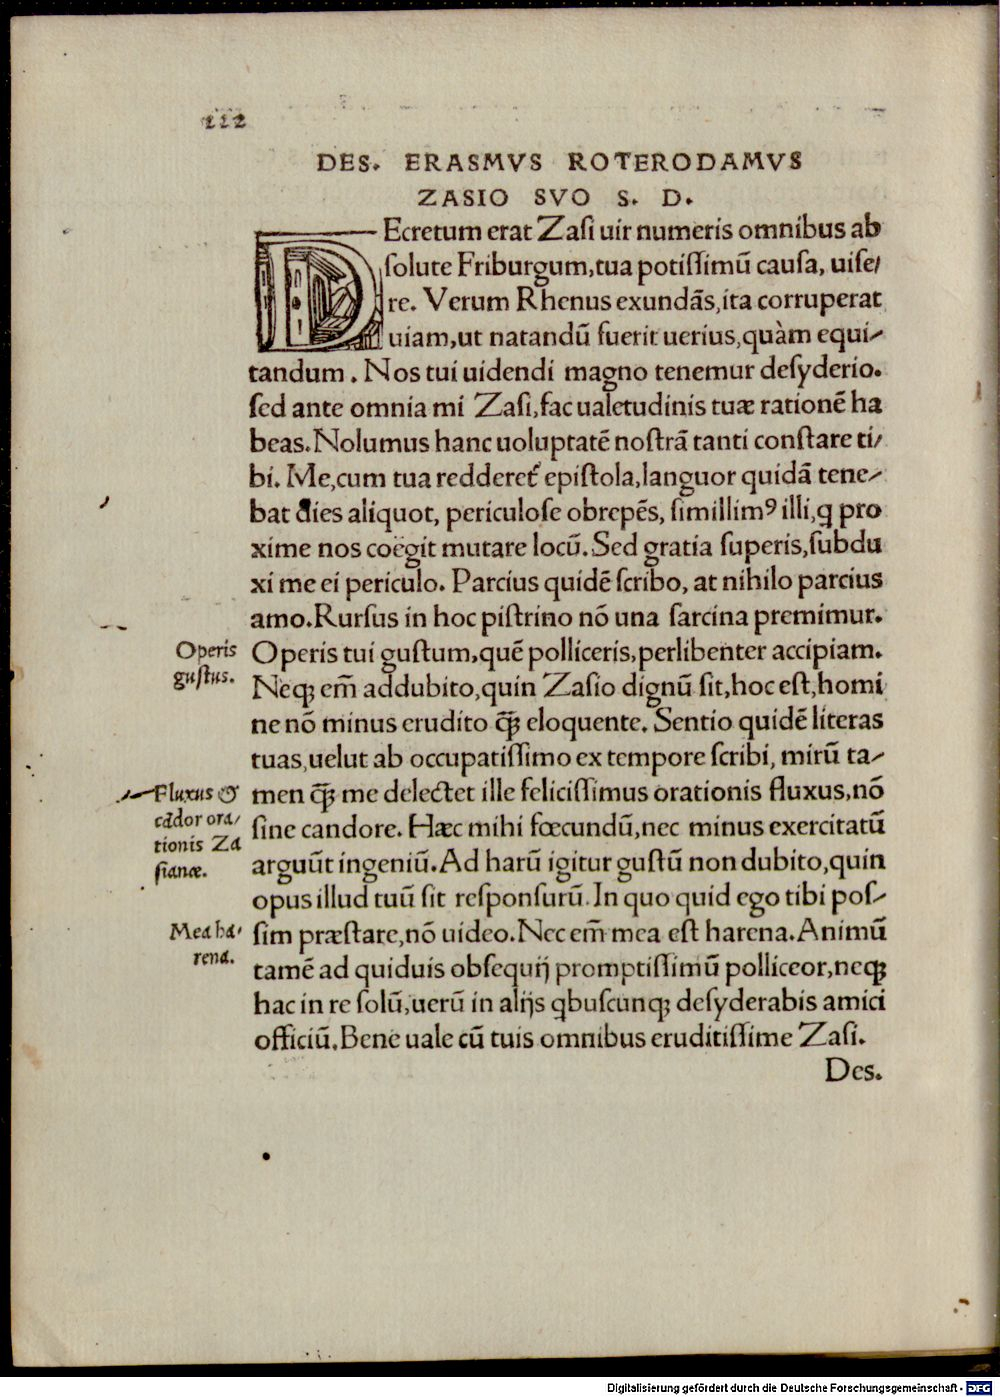 222
DES. ERASMVS ROTERODAMVS
ZASIO SVO S. D.
DEcretum erat Zasi uir numeris omnibus ab
solute Friburgum, tua potissimũ causa, uise/
re. Verum Rhenus exundãs, ita corruperat
uiam, ut natandũ fuerit uerius, quàm equi/
tandum. Nos tui uidendi magno tenemur desyderio.
sed ante omnia mi Zasi, fac ualetudinis tuæ rationẽ ha
beas. Nolumus hanc uoluptatẽ nostrã tanti constare ti/
bi. Me, cum tua redderet᷑ epistola, languor quidã tene/
bat dies aliquot, periculose obrepẽs, simillimꝰ illi, q pro
xime nos coegit mutare locũ. Sed gratia superis, subdu
xi me ei periculo. Parcius quidẽ scribo, at nihilo parcius
amo. Rursus in hoc pistrino nõ una sarcina premimur.
Operis
gustus.
Operis tui gustum, quẽ polliceris, perlibenter accipiam.
Neqꝫ em̃ addubito, quin Zasio dignũ sit, hoc est, homi
ne nõ minus erudito q̃ꝫ eloquente. Sentio quidẽ literas
tuas, uelut ab occupatissimo ex tempore scribi, mirũ ta/
Fluxus &
cãdor ora/
tionis Za
sianæ.
men q̃ꝫ me delectet ille felicissimus orationis fluxus, nõ
sine candore. Hæc mihi fœcundũ, nec minus exercitatũ
arguũt ingeniũ. Ad harũ igitur gustũ non dubito, quin
opus illud tuũ sit responsurũ. In quo quid ego tibi pos/
Mea ha/
rena.
sim præstare, nõ uideo. Nec em̃ mea est harena. Animũ
tamẽ ad quiduis obsequij promptissimũ polliceor, neqꝫ
hac in re solũ, uerũ in alijs qbuscunqꝫ desyderabis amici
officiũ. Bene uale cũ tuis omnibus eruditissime Zasi.
Des.
Digitalisierung gefördert durch die Deutsche Forschungsgemeinschaft - DFG